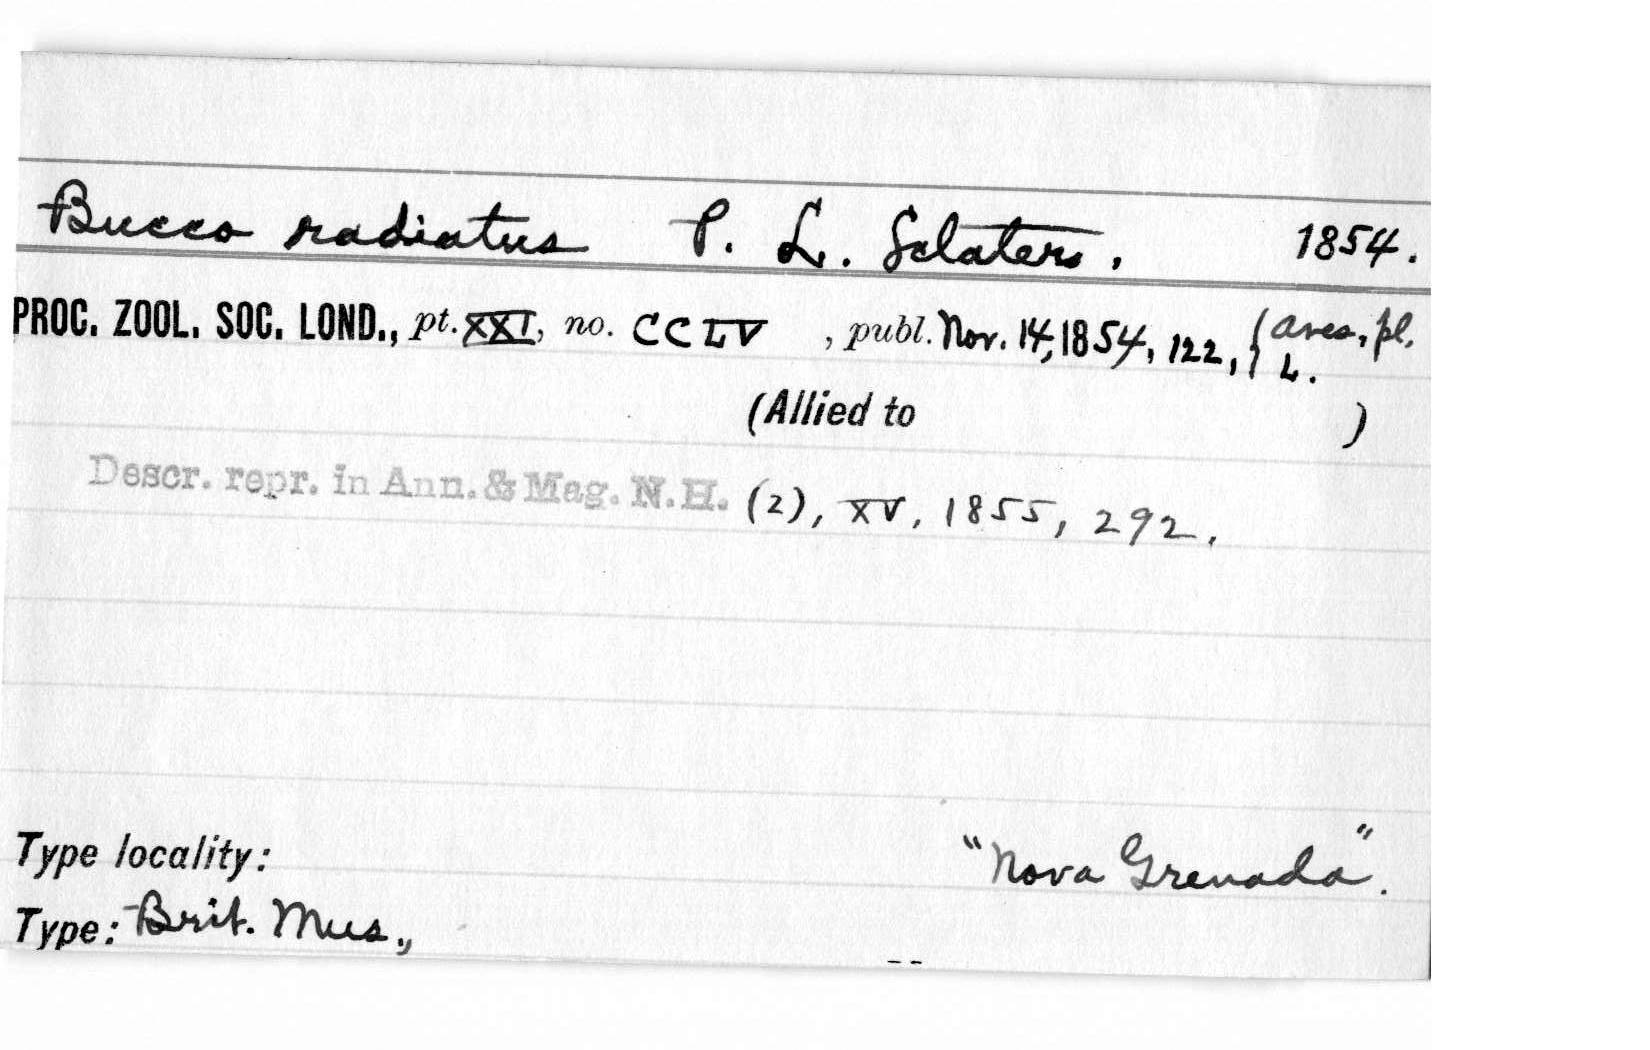 Bucco radiatus P. L. Sclater. 1854.
PROC. ZOOL. SOC. LOND., pt. XXI, no. CCLV , publ. Nov. 14, 1854, 122, { Aves, pl. L.
(Allied to )
Descr. repr. in Ann. & Mag. N.H. (2), XV, 1855, 292.
Type locality: "Nova Grenada".
Type: Brit. Mus.,